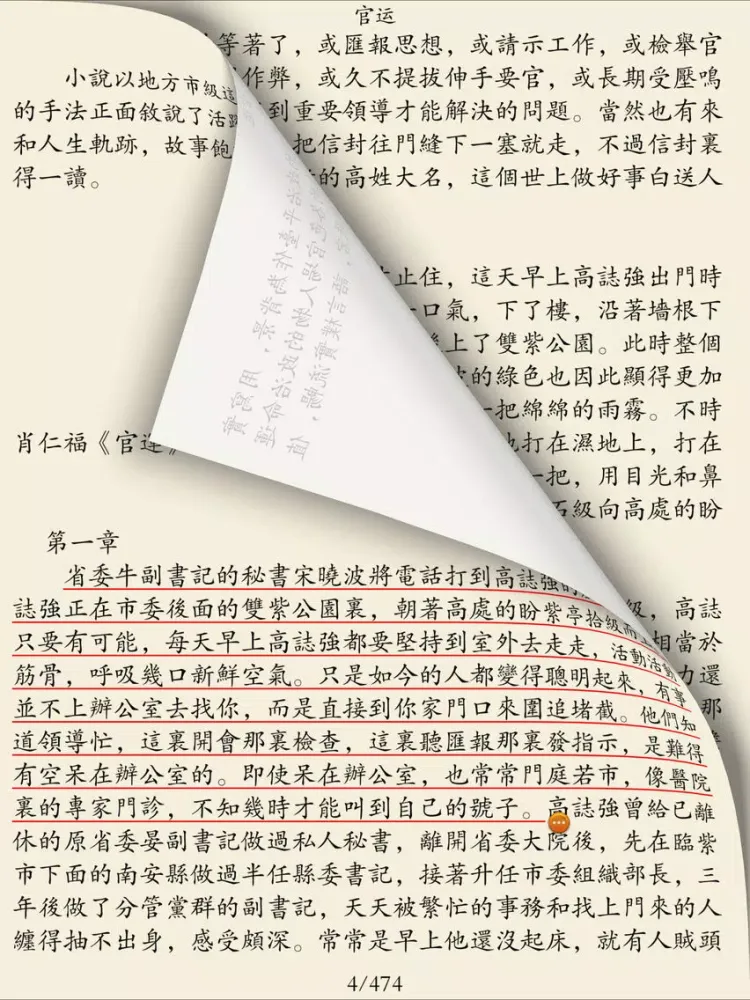 官运
等著了，或匯報思想，或請示工作，或檢舉官
小說以地方市級這 作弊，或久不提拔伸手要官，或長期受壓鳴
的手法正面敘說了活躍 到重要領導才能解決的問題。當然也有來
和人生軌跡，故事飽 把信封往門縫下一塞就走，不過信封裏
得一讀。 的高姓大名，這個世上做好事白送人
止住，這天早上高誌強出門時
口氣，下了樓，沿著墻根下
上了雙紫公園。此時整個
的綠色也因此顯得更加
一把綿綿的雨霧。不時
肖仁福《官運》 打在濕地上，打在
一把，用目光和鼻
石級向高處的盼
第一章
省委牛副書記的秘書宋曉波將電話打到高誌強的
誌強正在市委後面的雙紫公園裏，朝著高處的盼紫亭拾級而 級，高誌
只要有可能，每天早上高誌強都要堅持到室外去走走，活動活動 相當於
筋骨，呼吸幾口新鮮空氣。只是如今的人都變得聰明起來，有事 力還
並不上辦公室去找你，而是直接到你家門口來圍追堵截。他們知 那
道領導忙，這裏開會那裏檢查，這裏聽匯報那裏發指示，是難得
有空呆在辦公室的。即使呆在辦公室，也常常門庭若市，像醫院
裏的專家門診，不知幾時才能叫到自己的號子。高誌強曾給已離
休的原省委晏副書記做過私人秘書，離開省委大院後，先在臨紫
市下面的南安縣做過半任縣委書記，接著升任市委組織部長，三
年後做了分管黨群的副書記，天天被繁忙的事務和找上門來的人
纏得抽不出身，感受頗深。常常是早上他還沒起床，就有人賊頭
4/474